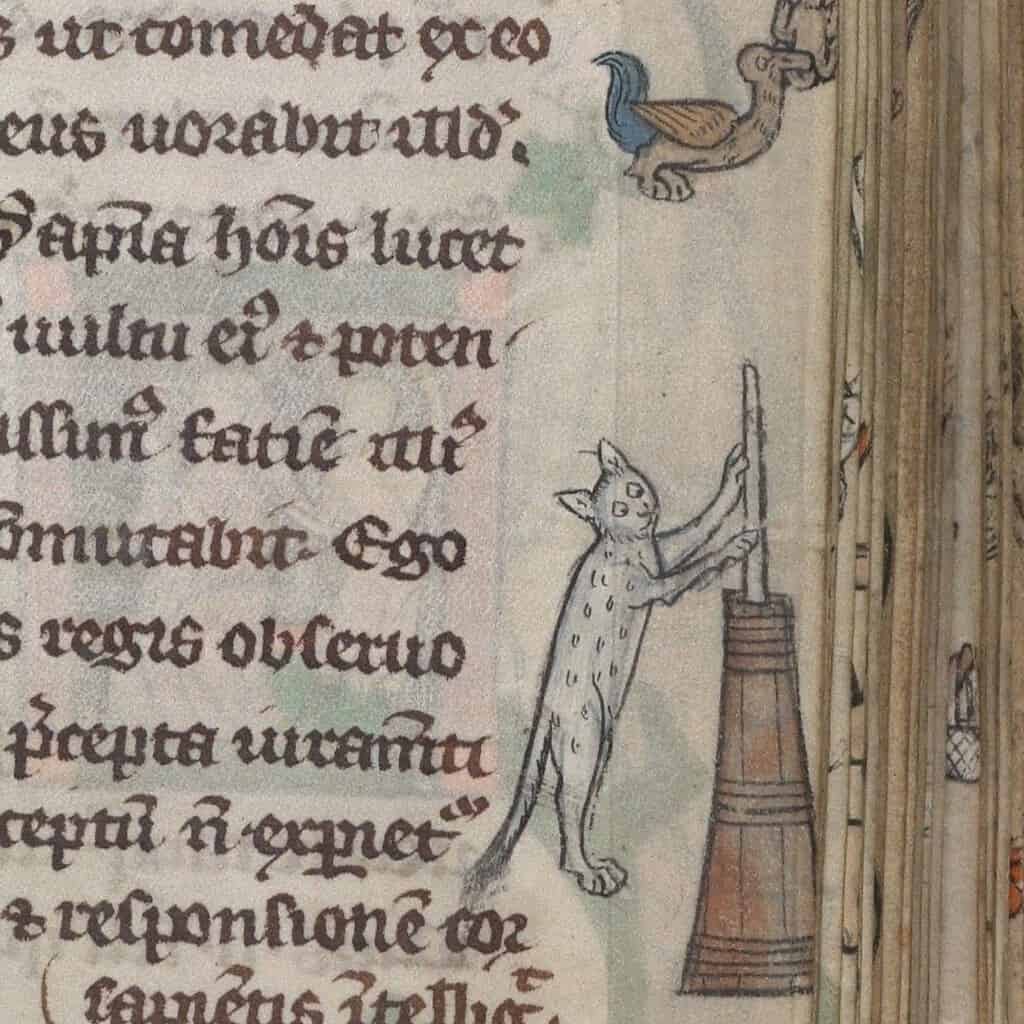 s ut comedat ex eo
eus uorabit illd᾽.
Sapīa hōis lucet
uultu eiꝰ ⁊ poten
issimꝰ faciē illiꝰ
ōmutabit. Ego
s regis obseruo
p̄cepta iuram̄ti
ceptū n̄ expiet᷑
⁊ responsionē cor
sapiētis ītellig᷑.